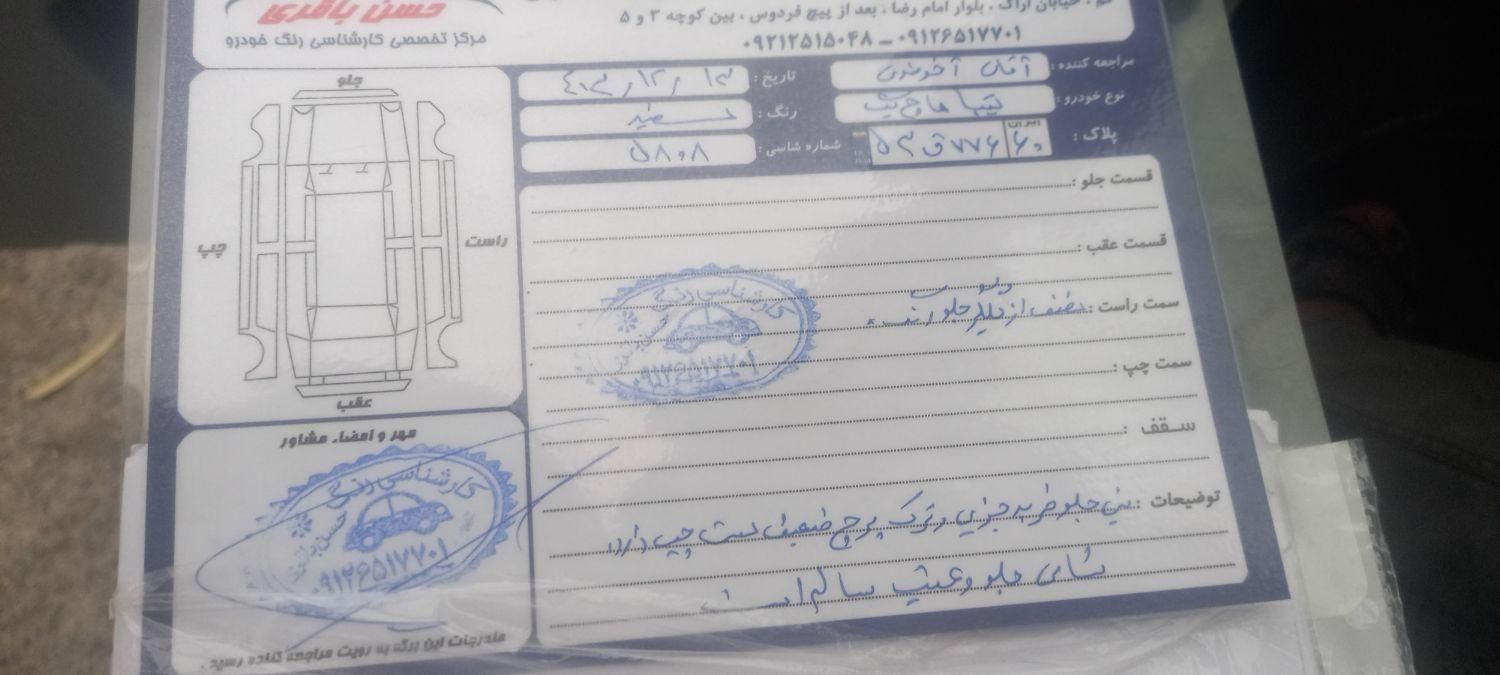 حسن باقری
مرکز تخصصی کارشناسی رنگ خودرو
قم ، خیابان اراک ، بلوار امام رضا ، بعد از پیچ فردوس ، بین کوچه ۳ و ۵
۰۹۱۲۶۵۱۷۷۰۱ - ۰۹۲۱۲۵۱۵۰۴۸
مراجعه کننده : آقای آخوندی
تاریخ : ۴۰۳/۱۲/۱۳
نوع خودرو : تیبا هاچ بک
رنگ : سفید
پلاک : ایران ۶۰ ۷۷۶ ق ۵۳
شماره شاسی : ۵۸۰۸
جلو
چپ
راست
عقب
قسمت جلو :
قسمت عقب :
سمت راست : نصف از گلگیر جلو رنگ
سمت چپ :
سقف :
توضیحات : سینی جلو ضربه جزیی و ترک پرچ ضعیف سمت چپ دارد
شاسی جلو و عقب سالم است
کارشناسی رنگ
حسن باقری
۰۹۱۲۶۵۱۷۷۰۱
مهر و امضاء مشاور
کارشناسی رنگ
حسن باقری
۰۹۱۲۶۵۱۷۷۰۱
مندرجات این برگه به رویت مراجعه کننده رسید .